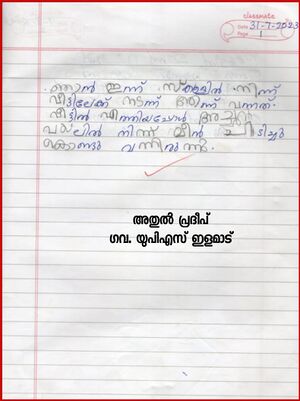 classmate
Date 31-7-2023
Page 1
ഞാൻ ഇന്ന് സ്കൂളിൽ നിന്ന്
വീട്ടിലേക്ക് നടന്ന് ആണ് വന്നത്.
വീട്ടിൽ എത്തിയപ്പോൾ അച്ഛൻ
വയലിൽ നിന്ന് മീൻ പിടിച്ചു
കൊണ്ടു വന്നിരുന്നു.
അതുൽ പ്രദീപ്
ഗവ. യുപിഎസ് ഇളമാട്